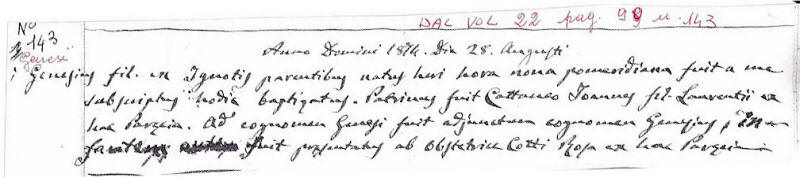 DAL VOL 22 pag. 99 n. 143
No 143
Genesi
Anno Domini 1874. Die 28. Augusti
Genesius fil. ex Ignotis parentibus natus heri hora nona pomeridiana fuit a me
subscriptus hodie baptizatus. Patrinus fuit Cattaneo Joannes fil. Laurentii ex
hac Parœcia. Ad cognomen Genesi fuit adjunctum cognomen Genesius, In-
fantem fuit præsentatus ab Obstetrice Cotti Rosa ex hac Parœcia